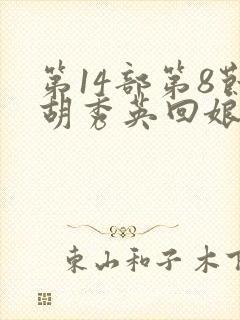 第14部第8
胡秀英回娘
东山和子木下